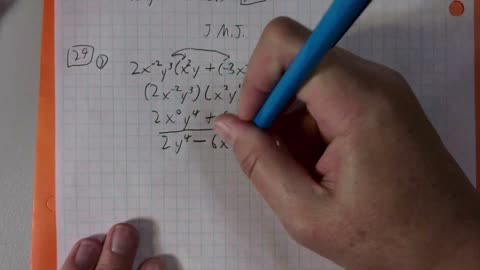 J.M.J.
29 1) 2x⁻²y³(x²y + (-3x
(2x⁻²y³)(x²y¹
2x⁰y⁴ +
2y⁴ - 6x